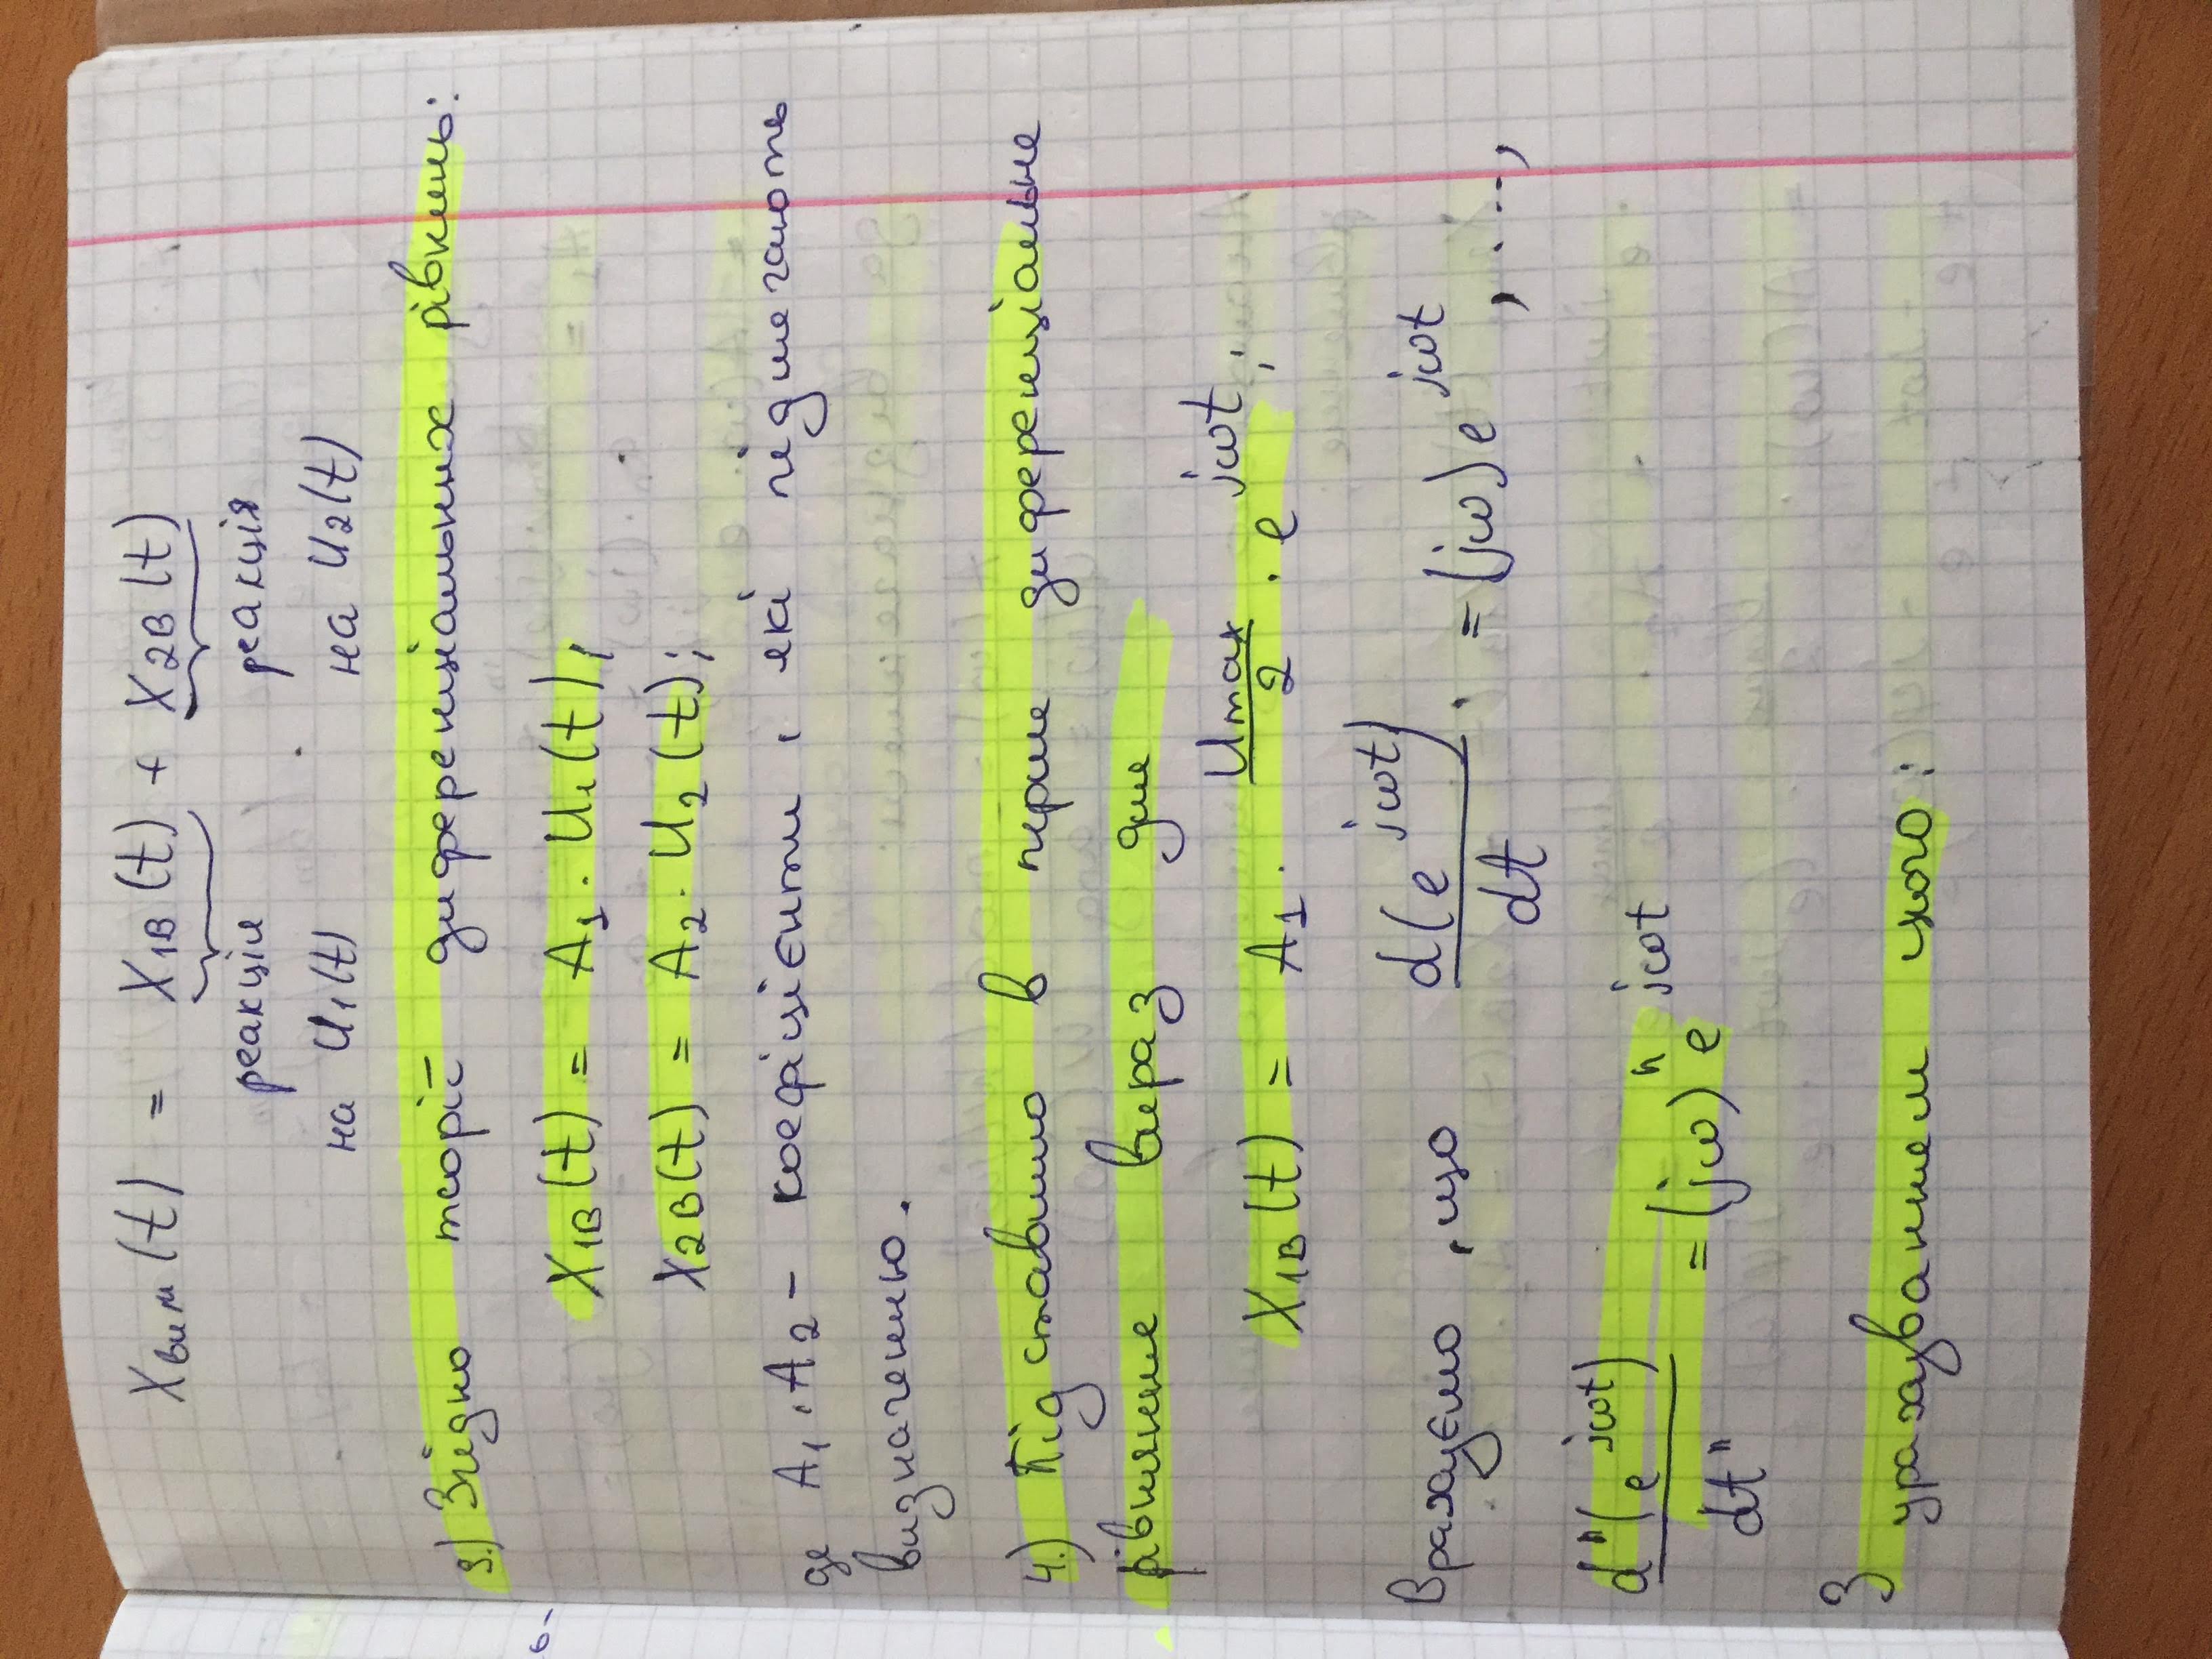 Xвим(t) = X1в(t) + X2в(t)
реакція реакція
на U1(t) на U2(t)
3.) Згідно теорії диференціальних рівнянь:
X1в(t) = A1 · U1(t),
X2в(t) = A2 · U2(t);
де A1, A2 - коефіцієнти, які підлягають
визначенню.
4.) Підставимо в перше диференціальне
рівняння вираз для
X1в(t) = A1 · Umax/2 · e^jωt;
Врахуємо, що d(e^jωt)/dt = (jω)e^jωt, ...,
d^n(e^jωt)/dt^n = (jω)^n e^jωt
З урахуванням цього: